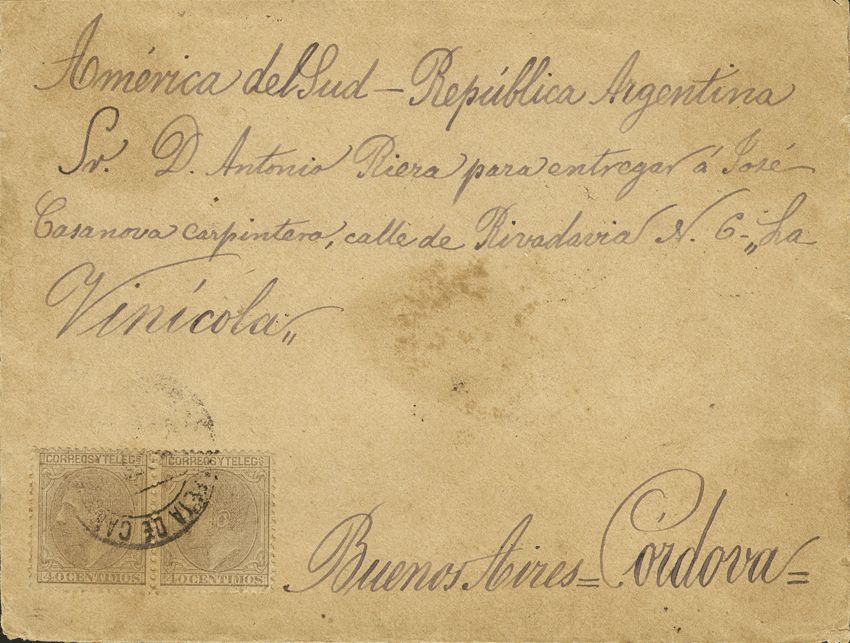 América del Sud – República Argentina
Sr. D. Antonio Riera para entregar á José
Casanova carpintero, calle de Rivadavia N. 6 – „La
Vinícola„
CORREOS Y TELEGS CORREOS Y TELEGS
DE CA
40 CENTIMOS 40 CENTIMOS
Buenos Aires = Córdova =